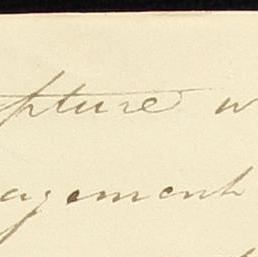 pture w
agement